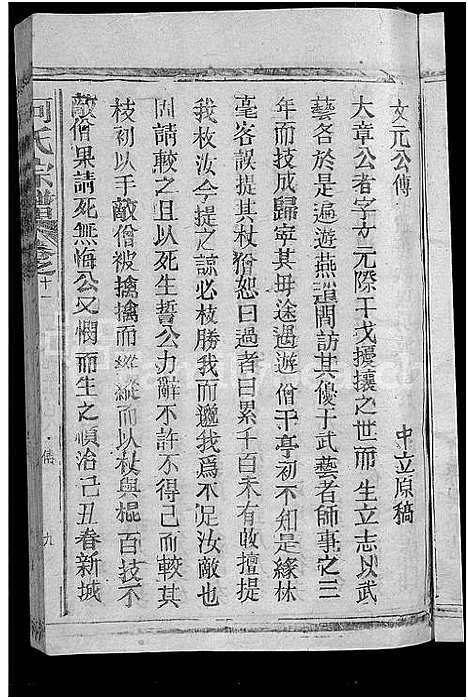 文元公傳
中立原稿
大章公者字文元際干戈擾攘之世而生立志以武
藝名於是遍遊燕趙間訪其優于武藝者師事之三
年而技成歸寧其母途過遊僧于亭初不知是緣休
毫客誤提其杖僧恕曰過者曰累千百未有敢擅提
我杖汝今提之諒必技勝我而邇我爲不足汝敵也
固請較之且以死生誓公力辭不許不得已而較其
技初以手敵僧被擒擒而縱縱而以杖與棍百技不
敵僧果請死無悔公又憫而生之順治己丑春新城
何氏宗譜 卷之十一
九